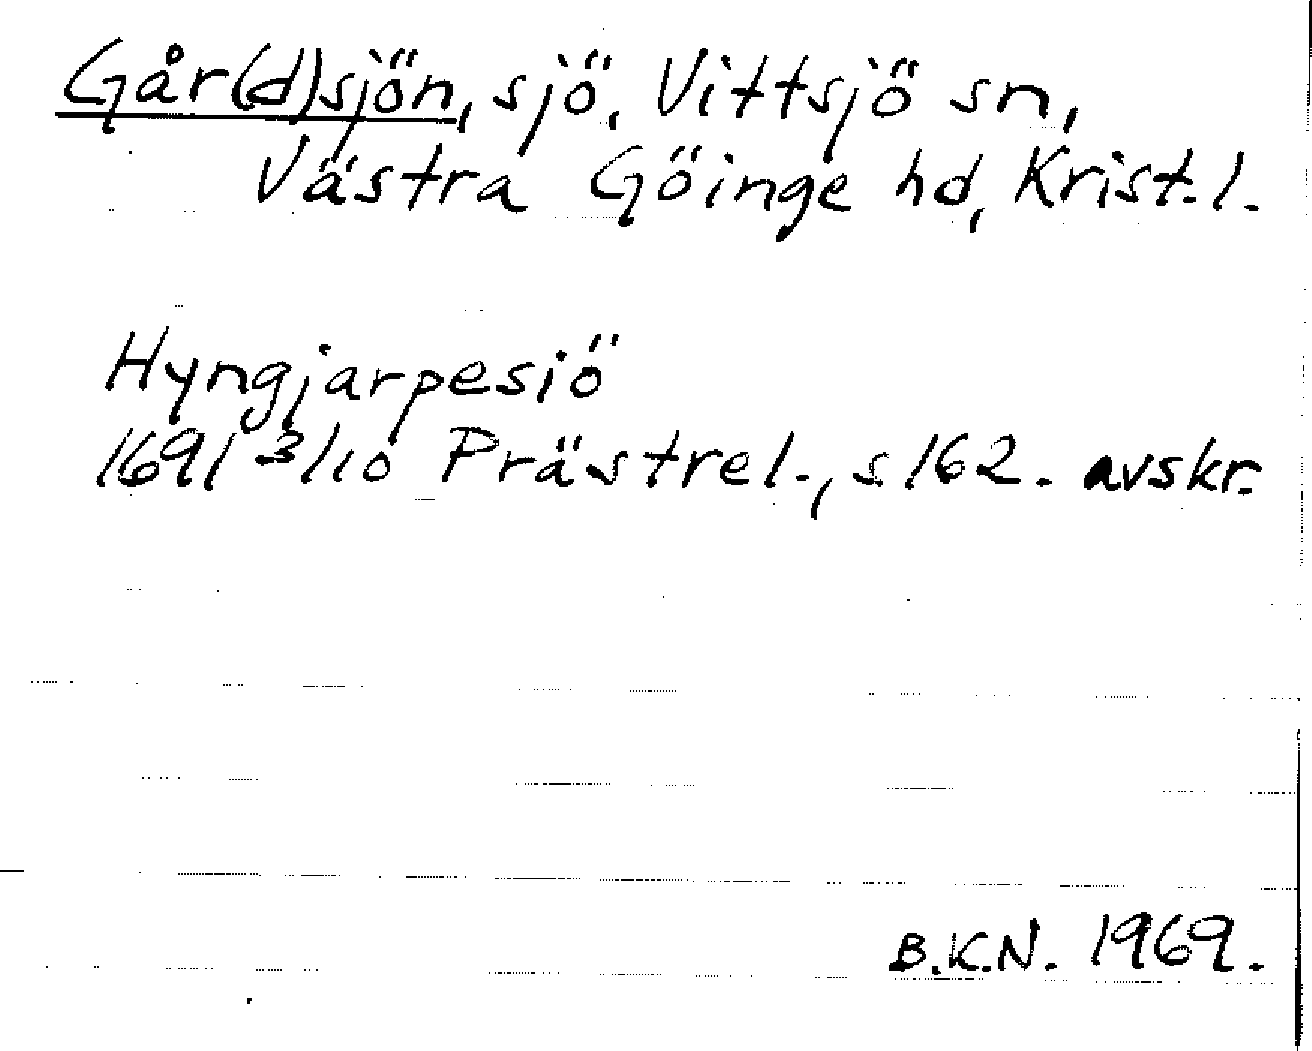 Går(d)sjön, sjö, Vittsjö sn,
Västra Göinge hd, Krist.l.
Hyngjarpesiö
1691 3/10 Prästrel., s 162. avskr.
B.K.N. 1969.